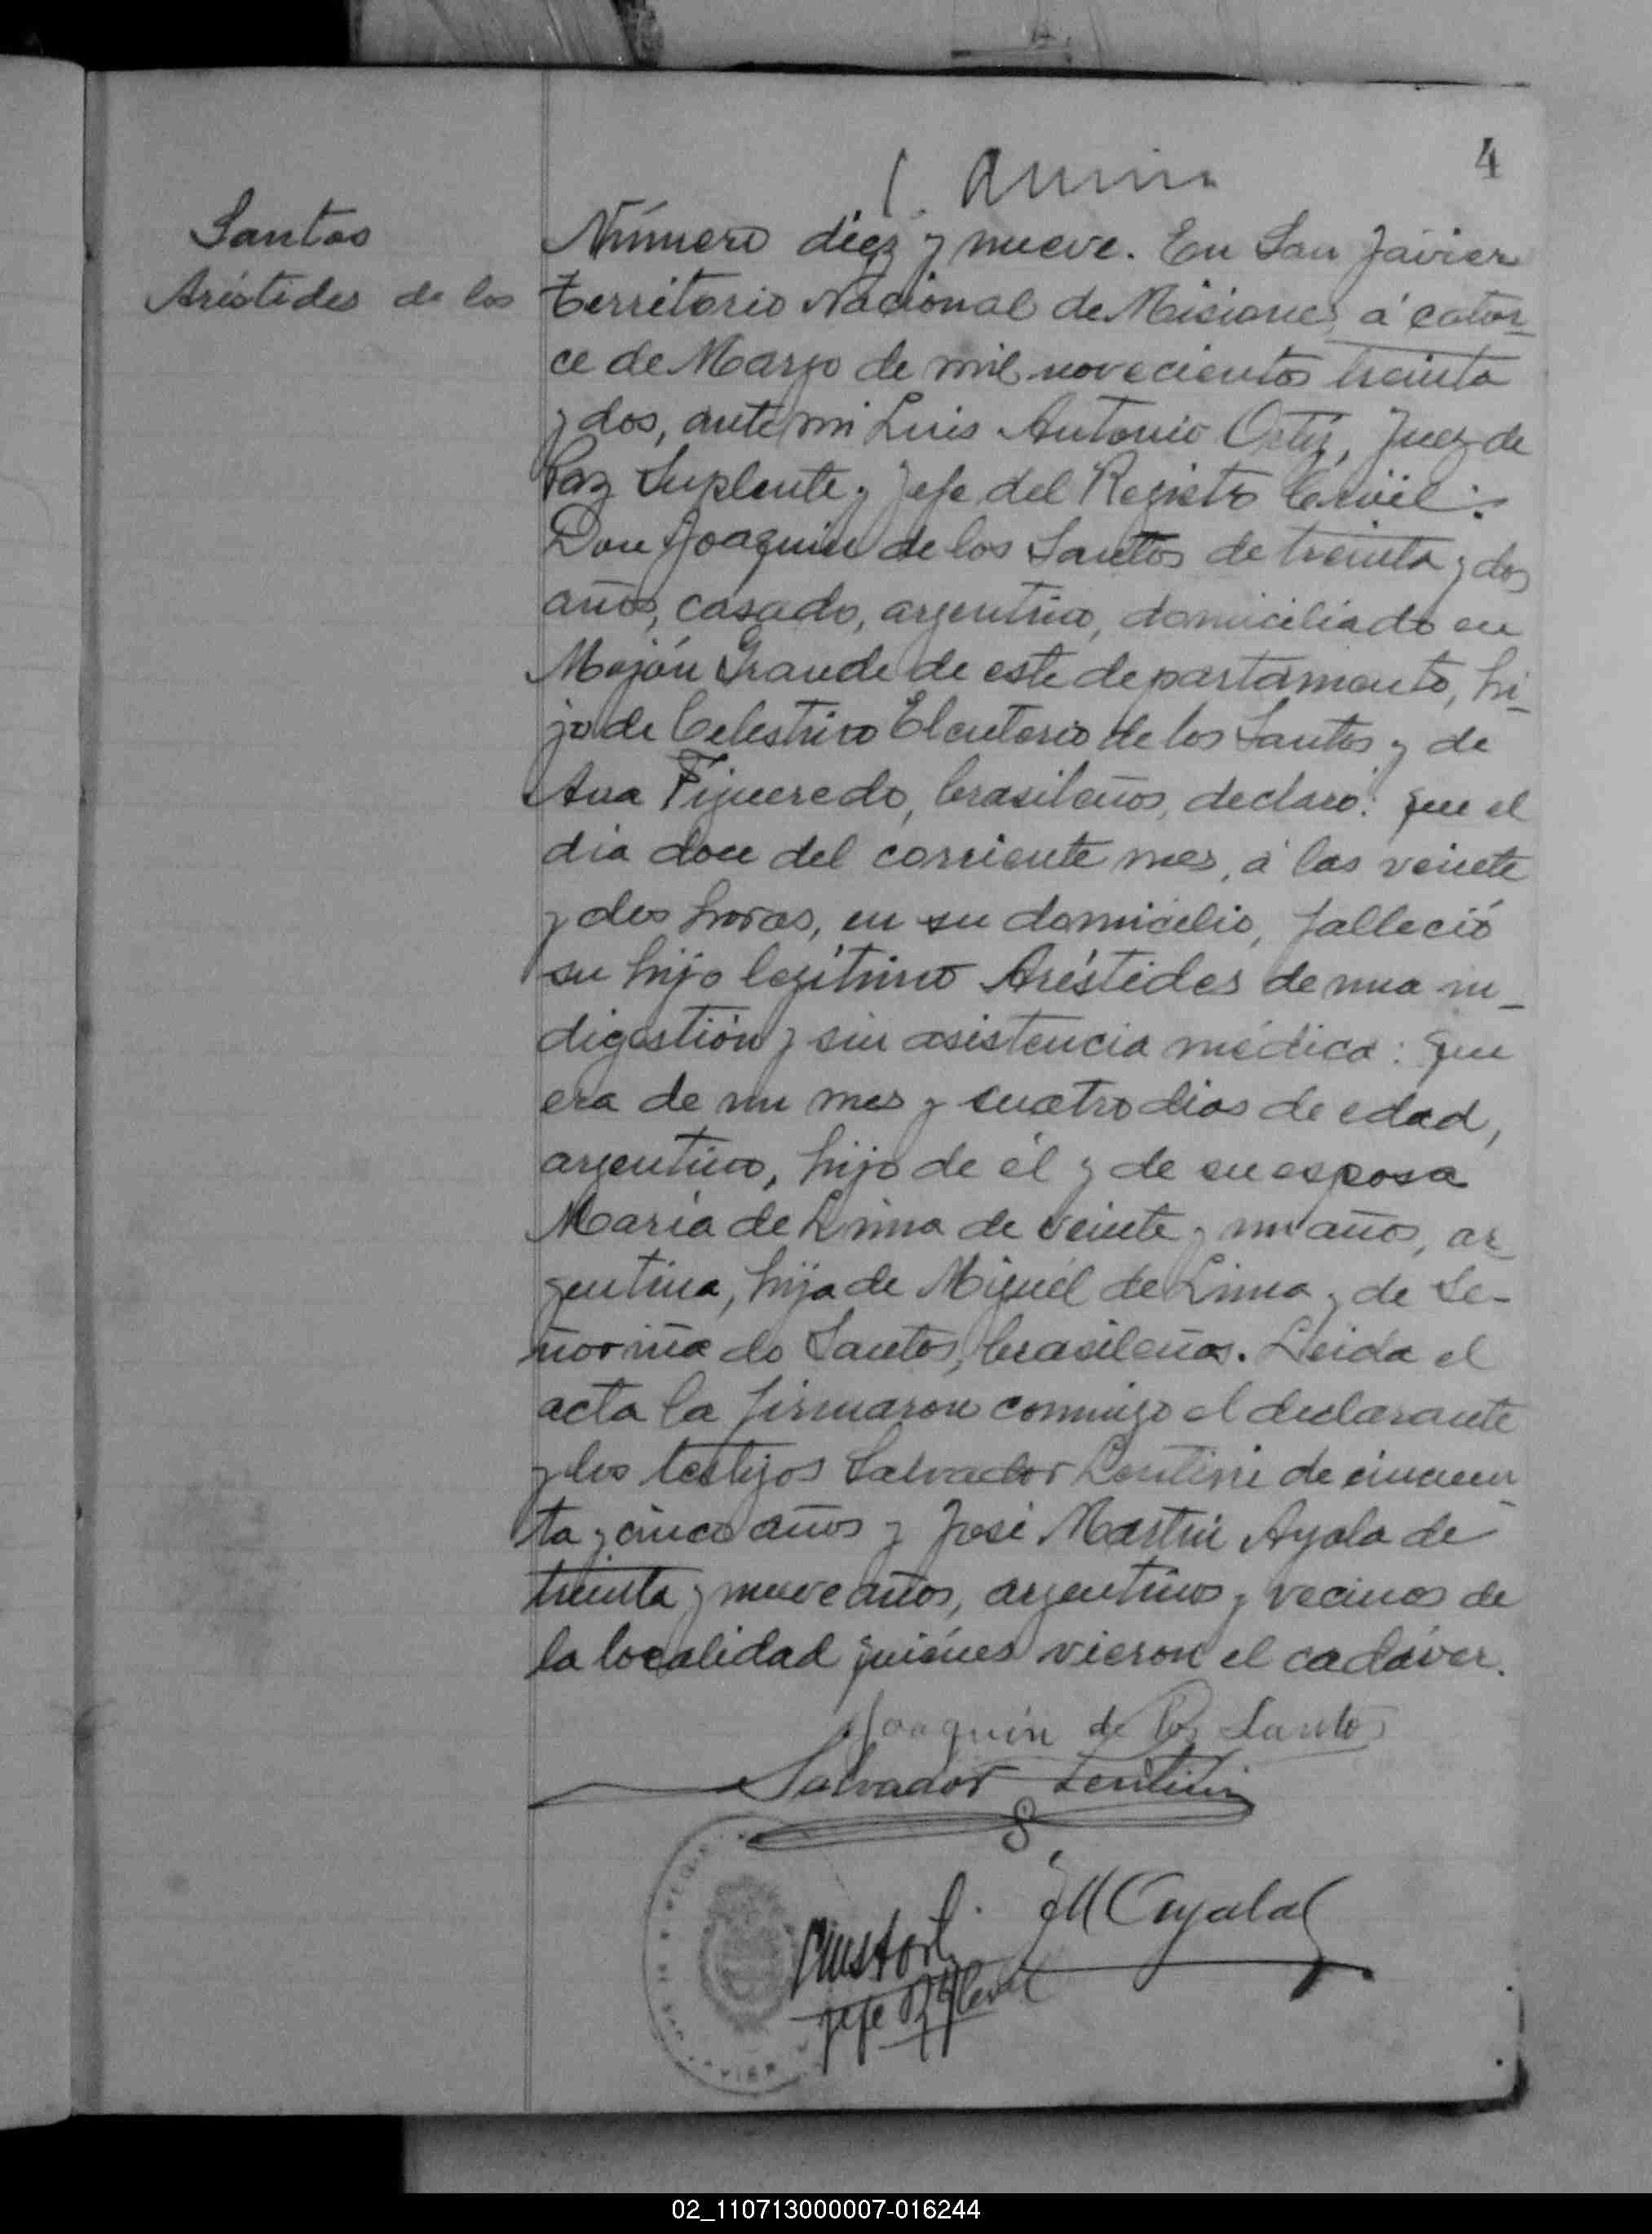 4
Santos
Arístides de los
Número diez y nueve. En San Javier
Territorio Nacional de Misiones, á cator-
ce de Marzo de mil novecientos treinta
y dos, ante mi Luis Antonio Ortiz, Juez de
Paz Suplente y Jefe del Registro Civil:
Don Joaquin de los Santos de treinta y dos
años, casado, argentino, domiciliado en
Mojón Grande de este departamento, hi-
jo de Celestino Eleuterio de los Santos y de
Ana Figueredo, brasileños, declaró: que el
dia doce del corriente mes, á las veinte
y dos horas, en su domicilio, falleció
su hijo legítimo Arístides de una in-
digestión y sin asistencia médica: que
era de un mes y cuatro dias de edad,
argentino, hijo de él y de su esposa
María de Lima de veinte y un años, ar-
gentina, hija de Miguél de Lima y de Se-
ñoriña do Santos, brasileños. Leida el
acta la firmaron conmigo el declarante
y los testigos Salvador Lentini de cincuen-
ta y cinco años y José Martín Ayala de
treinta y nueve años, argentinos y vecinos de
la localidad quiénes vieron el cadáver.
Joaquín de los Santos
Salvador Lentini
JM Ayala
Jefe R. Civil
02_110713000007-016244